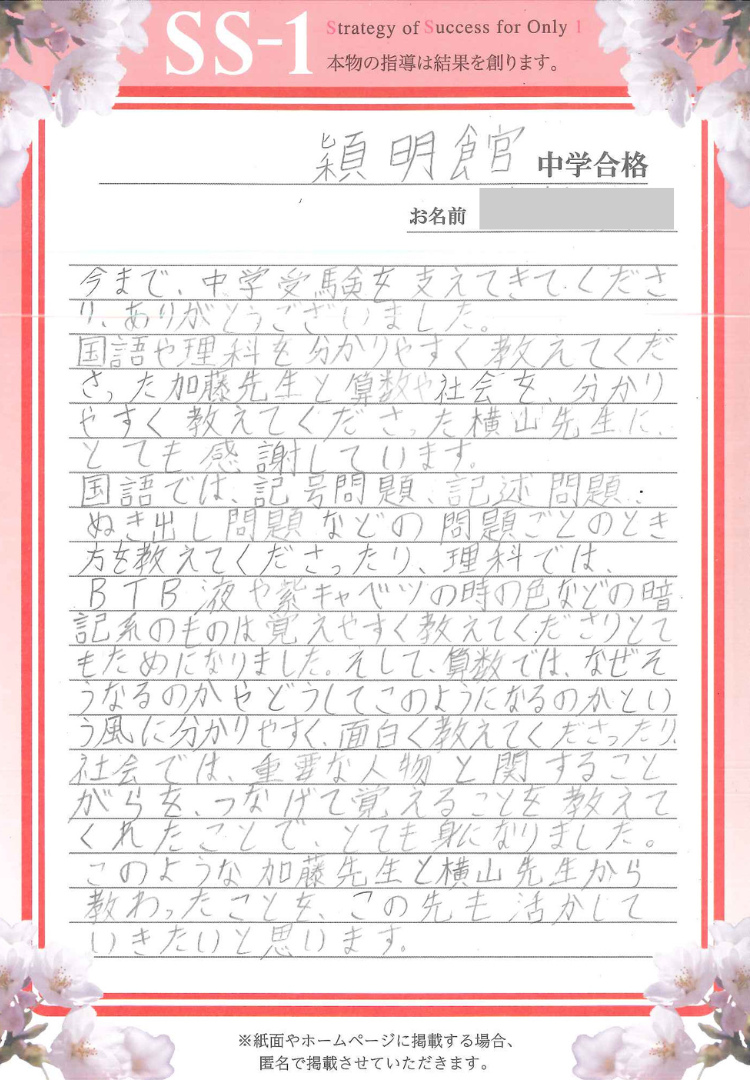 SS-1
Strategy of Success for Only 1
本物の指導は結果を創ります。
穎明館 中学合格
お名前
今まで、中学受験を支えてきてくださ
り、ありがとうございました。
国語や理科を分かりやすく教えてくだ
さった加藤先生と算数や社会を、分かり
やすく教えてくださった横山先生に、
とても感謝しています。
国語では、記号問題、記述問題、
ぬき出し問題などの問題ごとのとき
方を教えてくださったり、理科では、
BTB液や紫キャベツの時の色などの暗
記系のものは覚えやすく教えてくださりとて
もためになりました。そして、算数では、なぜそ
うなるのかやどうしてこのようになるのかとい
う風に分かりやすく、面白く教えてくださったり、
社会では、重要な人物と関すること
がらを、つなげて覚えることを教えて
くれたことで、とても身になりました。
このような加藤先生と横山先生から
教わったことを、この先も活かして
いきたいと思います。
※紙面やホームページに掲載する場合、
匿名で掲載させていただきます。